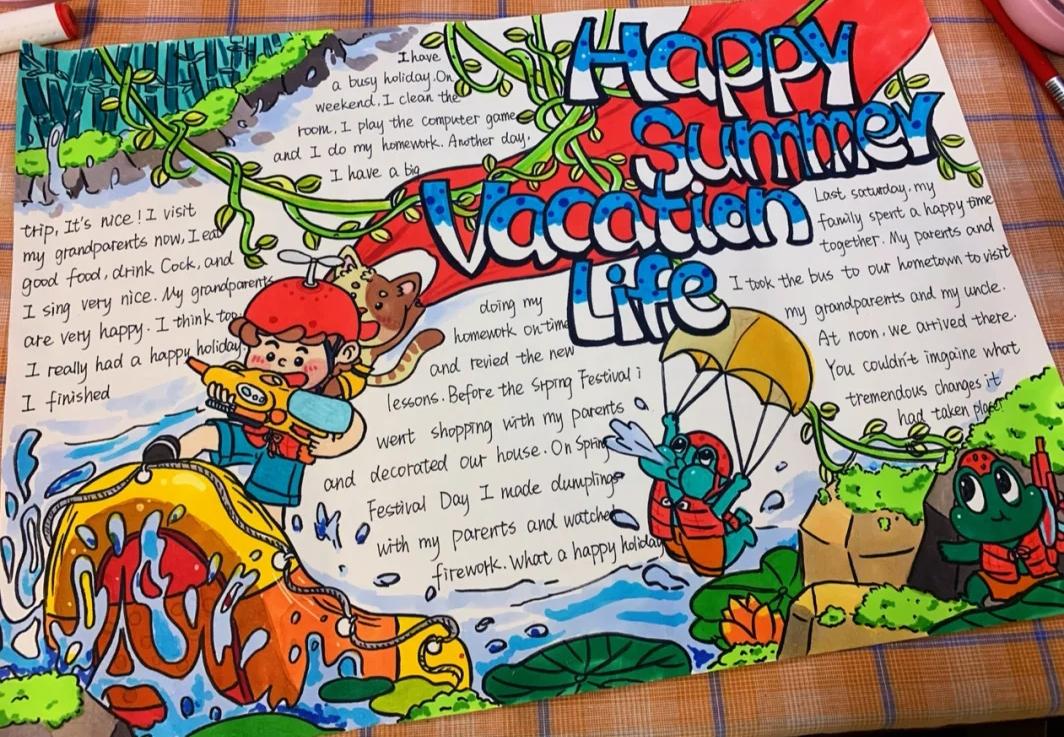 Happy
Summer
Vacation
Life
I have
a busy holiday. On
weekend. I clean the
room. I play the computer game
and I do my homework. Another day.
I have a big
trip, It's nice! I visit
my grandparents now, I eat
good food, drink Cock, and
I sing very nice. My grandparents
are very happy. I think too
I really had a happy holiday
I finished
doing my
homework on time
and revied the new
lessons. Before the Srping Festival i
went shopping with my parents
and decorated our house. On Spring
Festival Day I made dumplings
with my parents and watched
firework. What a happy holiday
Last saturday, my
family spent a happy time
together. My parents and
I took the bus to our hometown to visit
my grandparents and my uncle.
At noon, we arrived there.
You couldn't imgaine what
tremendous changes it
had taken place